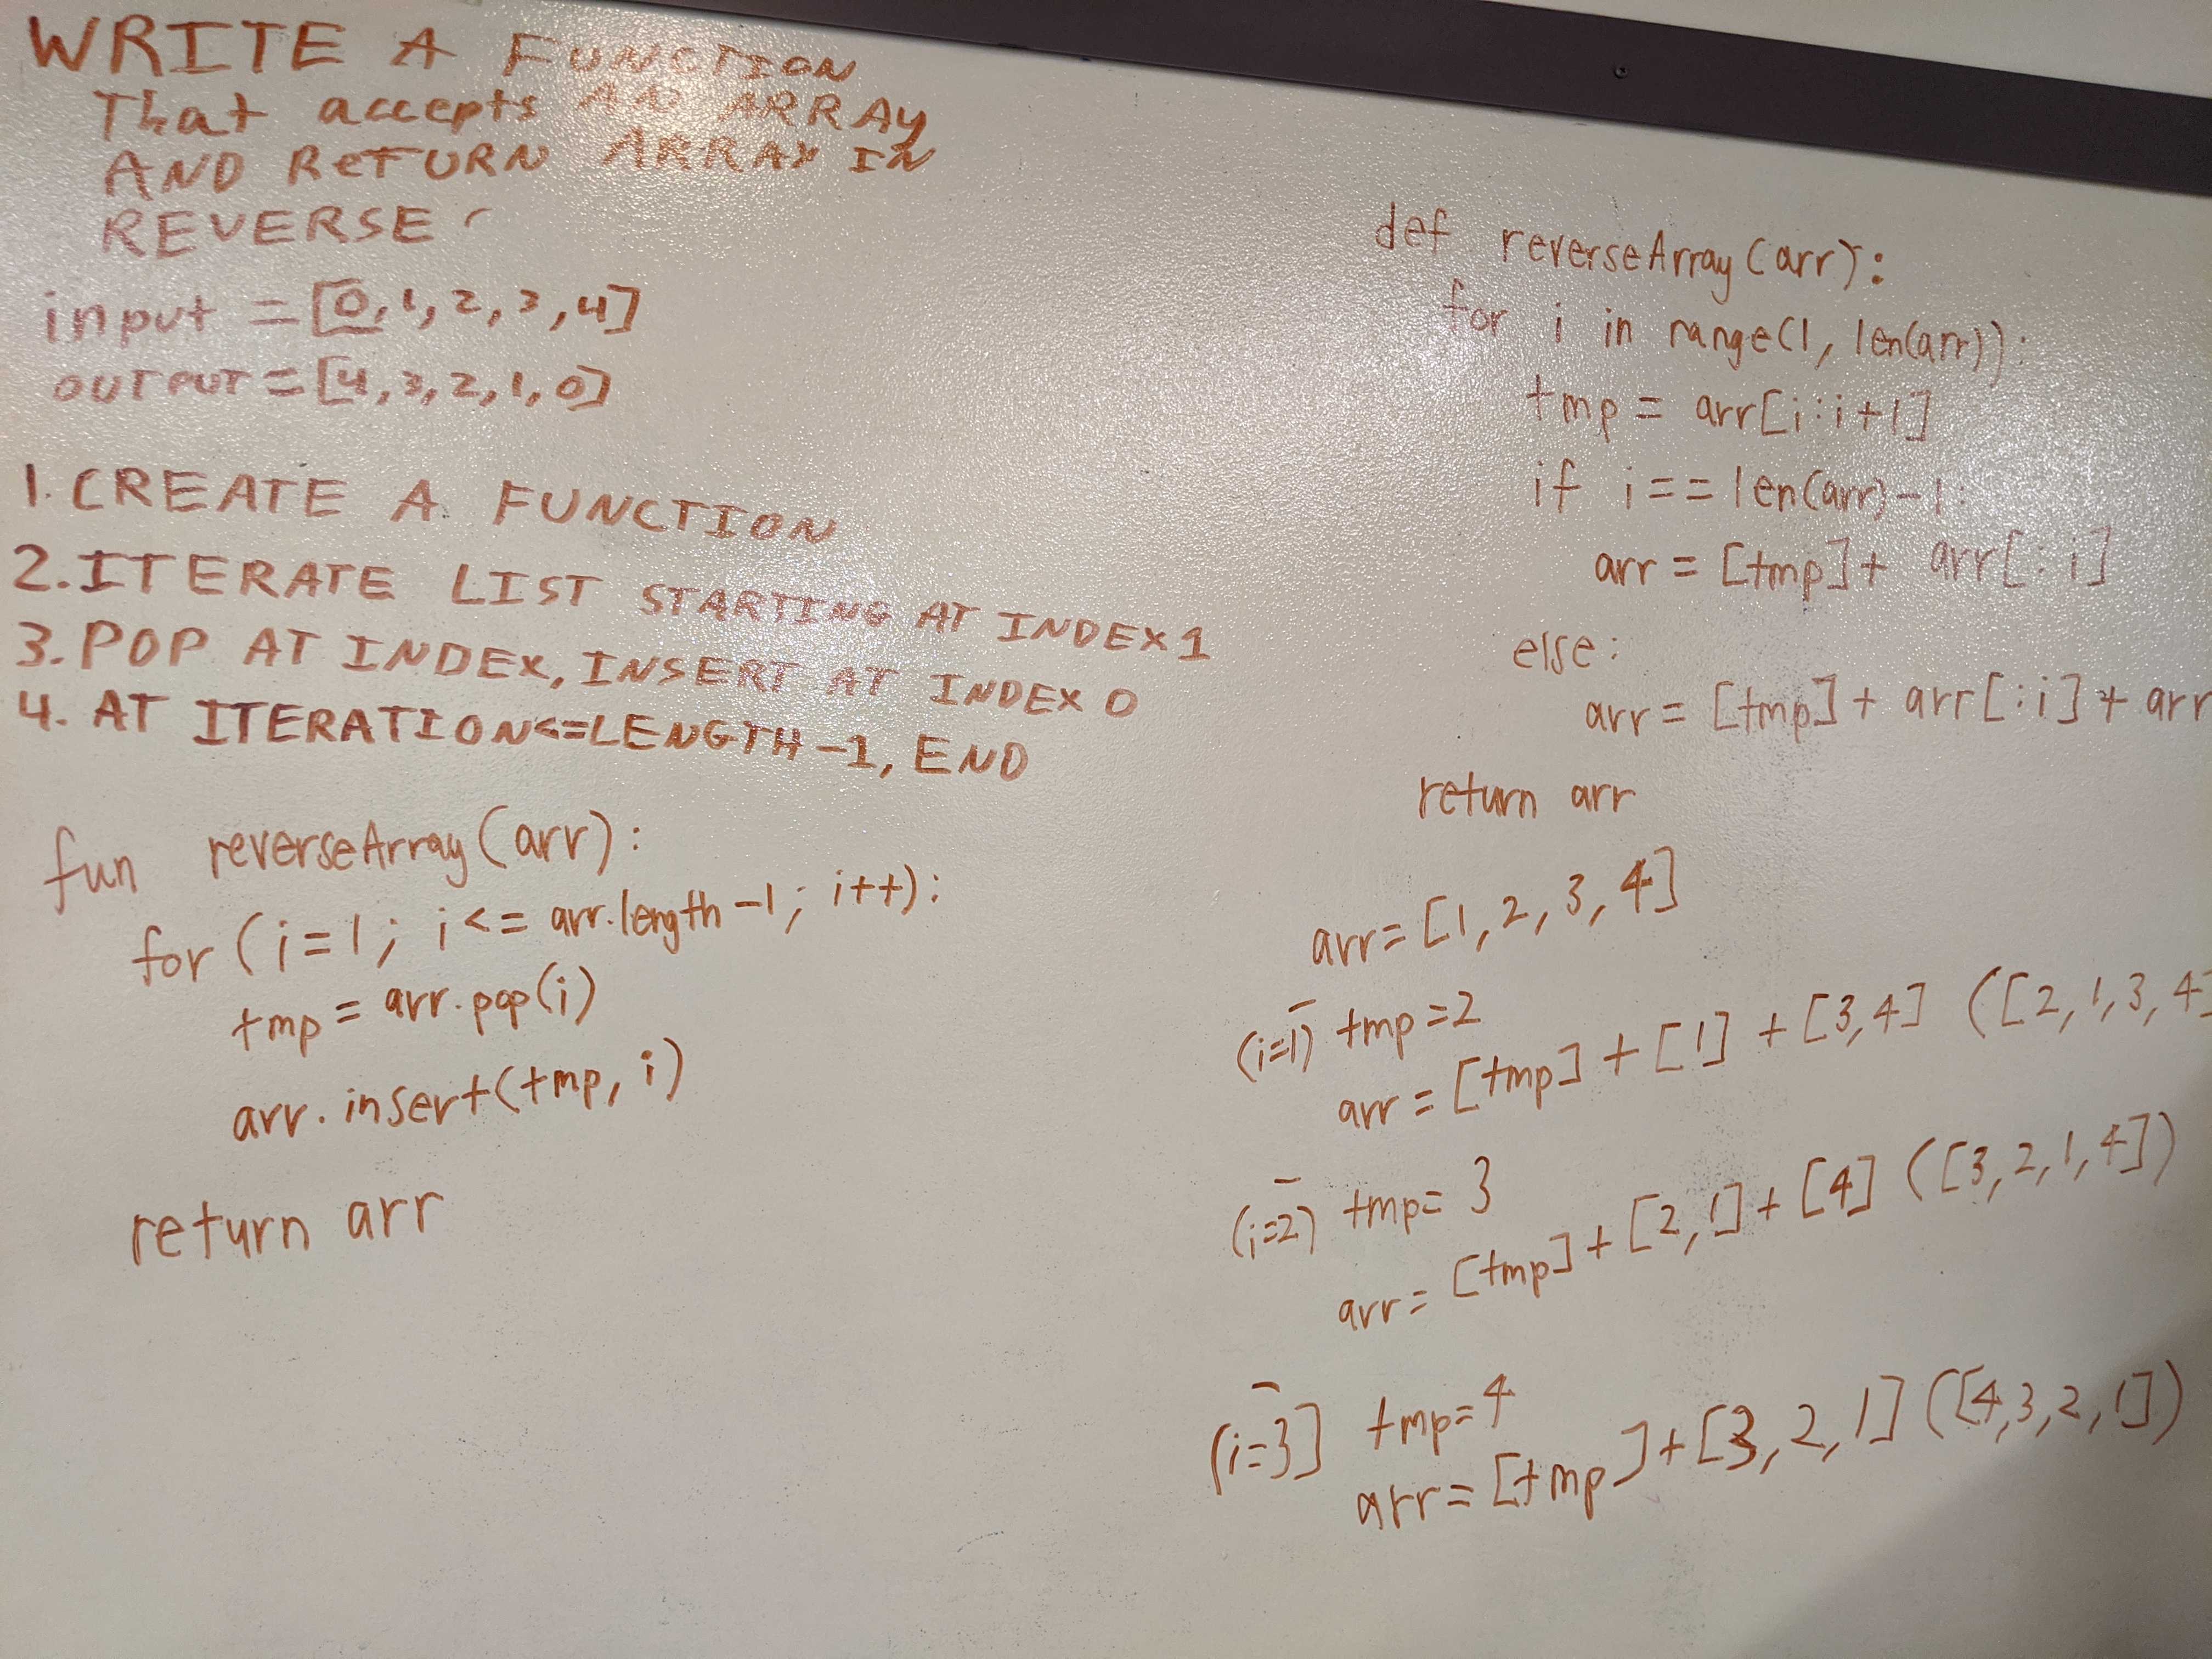 WRITE A FUNCTION
That accepts AN ARRAY
AND ReTURN ARRAY IN
REVERSE
input = [0,1,2,3,4]
OUTPUT = [4,3,2,1,0]
1. CREATE A FUNCTION
2. ITERATE LIST STARTING AT INDEX 1
3. POP AT INDEX, INSERT AT INDEX 0
4. AT ITERATION<=LENGTH-1, END
fun reverseArray(arr):
for (i=1; i <= arr.length-1; i++):
tmp = arr.pop(i)
arr.insert(tmp, i)
return arr
def reverseArray(arr):
for i in range(1, len(arr)):
tmp = arr[i:i+1]
if i == len(arr)-1:
arr = [tmp] + arr[:i]
else:
arr = [tmp] + arr[:i] + arr
return arr
arr = [1,2,3,4]
(i=1) tmp=2
arr = [tmp] + [1] + [3,4] ([2,1,3,4]
(i=2) tmp= 3
arr= [tmp] + [2,1] + [4] ([3,2,1,4])
(i=3] tmp=4
arr= [tmp] + [3,2,1] ([4,3,2,1])